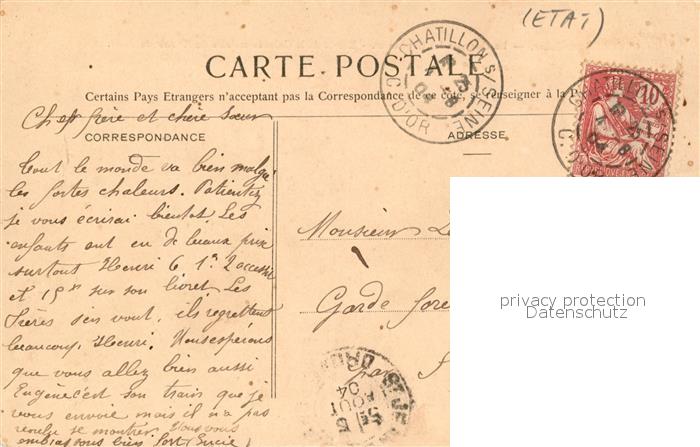 (ETAT)
CHATILLON S. SEINE
COTE D'OR
CARTE POSTALE
10
Certains Pays Etrangers n'acceptent pas la Correspondance de ce côté, se renseigner à la P
Cher frère et chère sœur
CORRESPONDANCE
ADRESSE
tout le monde va bien malgré
les fortes chaleurs. Patientez
je vous écrirai bientot. Les
enfants ont eu de beaux prix
surtout Henri 6 1er 2 accessit
et 15 sur son livret Les
Frères s'en vont, ils regrettent
beaucoup Henri. Nous espérons
que vous allez bien aussi
Eugène c'est son train que je
vous envoie mais il n'a pas
voulu se montrer. Nous vous
embrassons bien fort
Monsieur
Garde
privacy protection
Datenschutz
AOUT
04